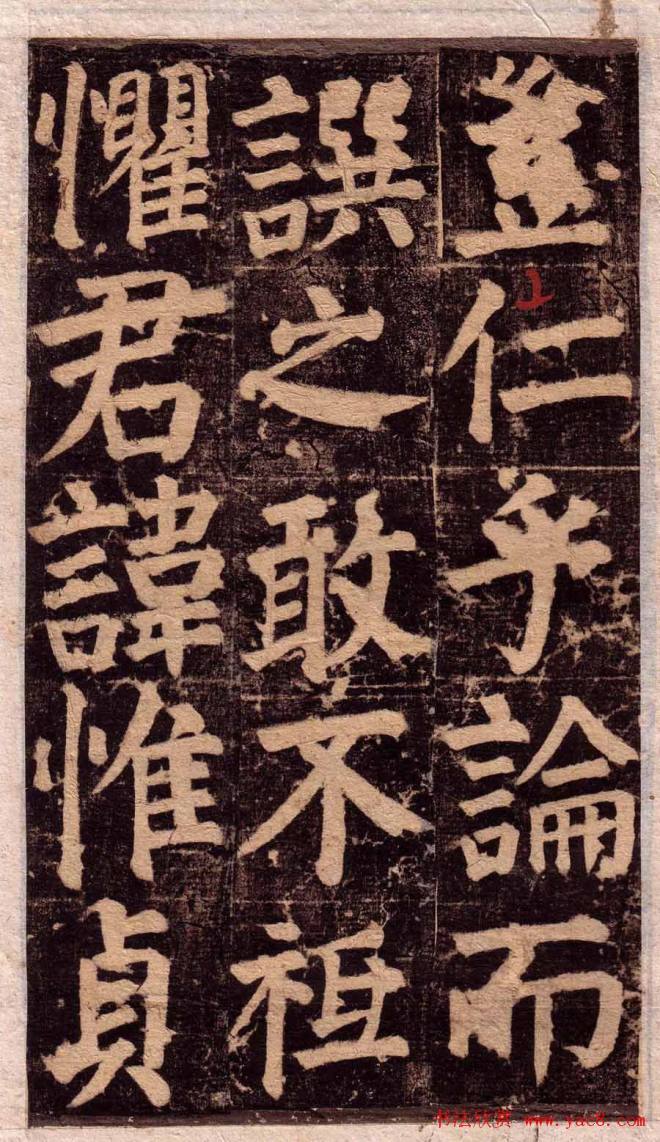 豈仁乎論而
譔之敢不祗
懼君諱惟貞
书法欣赏 www.yac8.com